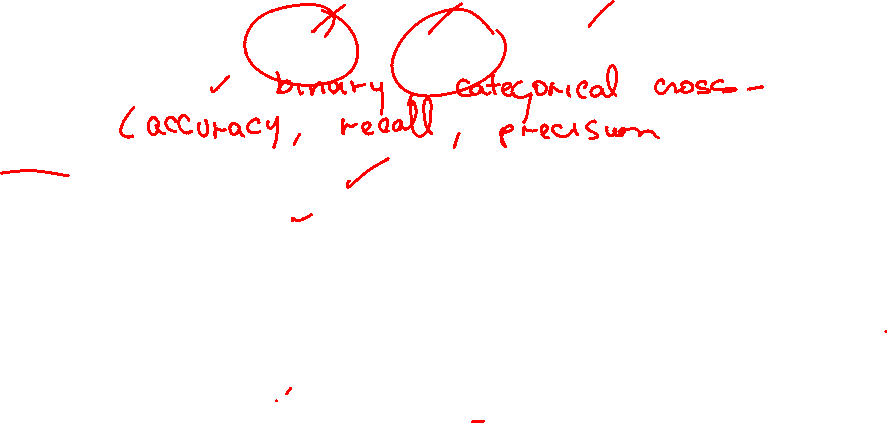 binary categorical cross-
(accuracy, recall, precision